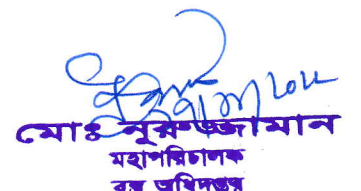 মোঃ নুরুজ্জামান
মহাপরিচালক
বস্ত্র অধিদপ্তর